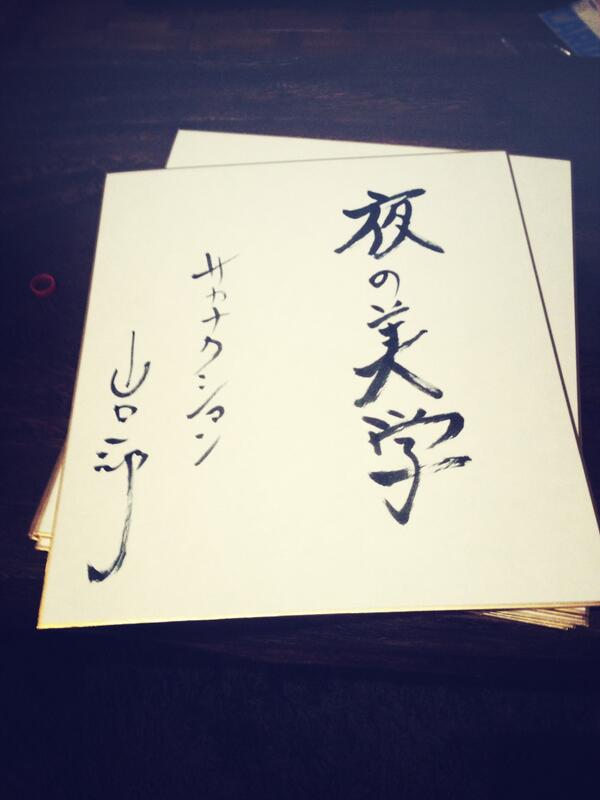 夜の美学
サカナクション
山口一郎